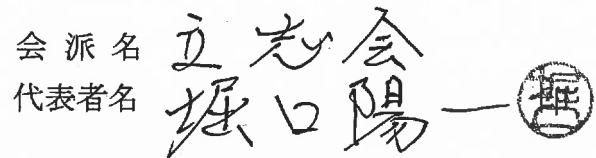 会派名 立志会
代表者名 堀口陽一